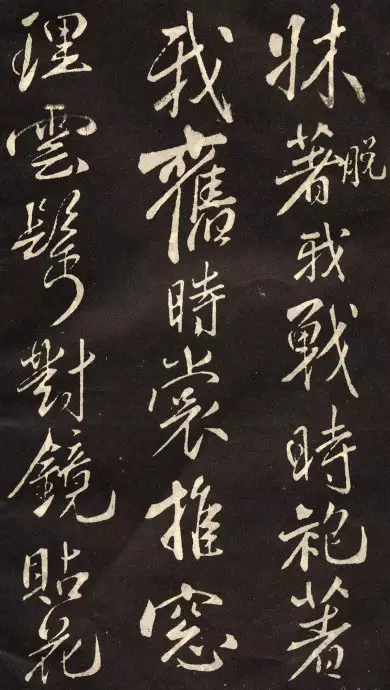 牀著脱我戰時袍著
我舊時裳推窓
理雲鬢對鏡貼花